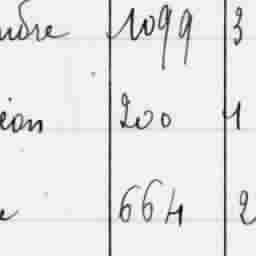 ndre 1099 3
éon 200 1
e 664 2